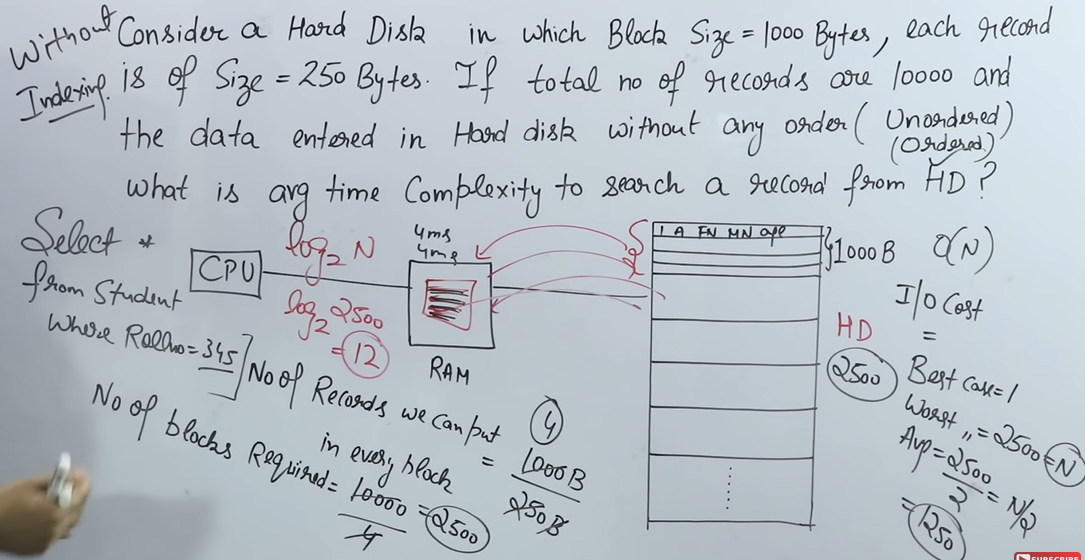 Without
Indexing.
Consider a Hard Disk in which Block Size = 1000 Bytes, each record
is of Size = 250 Bytes. If total no of records are 10000 and
the data entered in Hard disk without any order (Unordered)
(Ordered)
what is avg time Complexity to search a record from HD?
Select *
from Student
where Rollno = 345
CPU
log₂ N
log₂ 2500
= 12
4ms
4ms
RAM
1 A FN MN
}1000 B
O(N)
HD
2500
I/O Cost
=
Best Case = 1
Worst „ = 2500 = N
Avg = 2500/2 = N/2
= 1250
No of Records we can put
in every block = 1000B/250B
4
No of blocks Required = 10000/4 = 2500
SUBSCRIBE